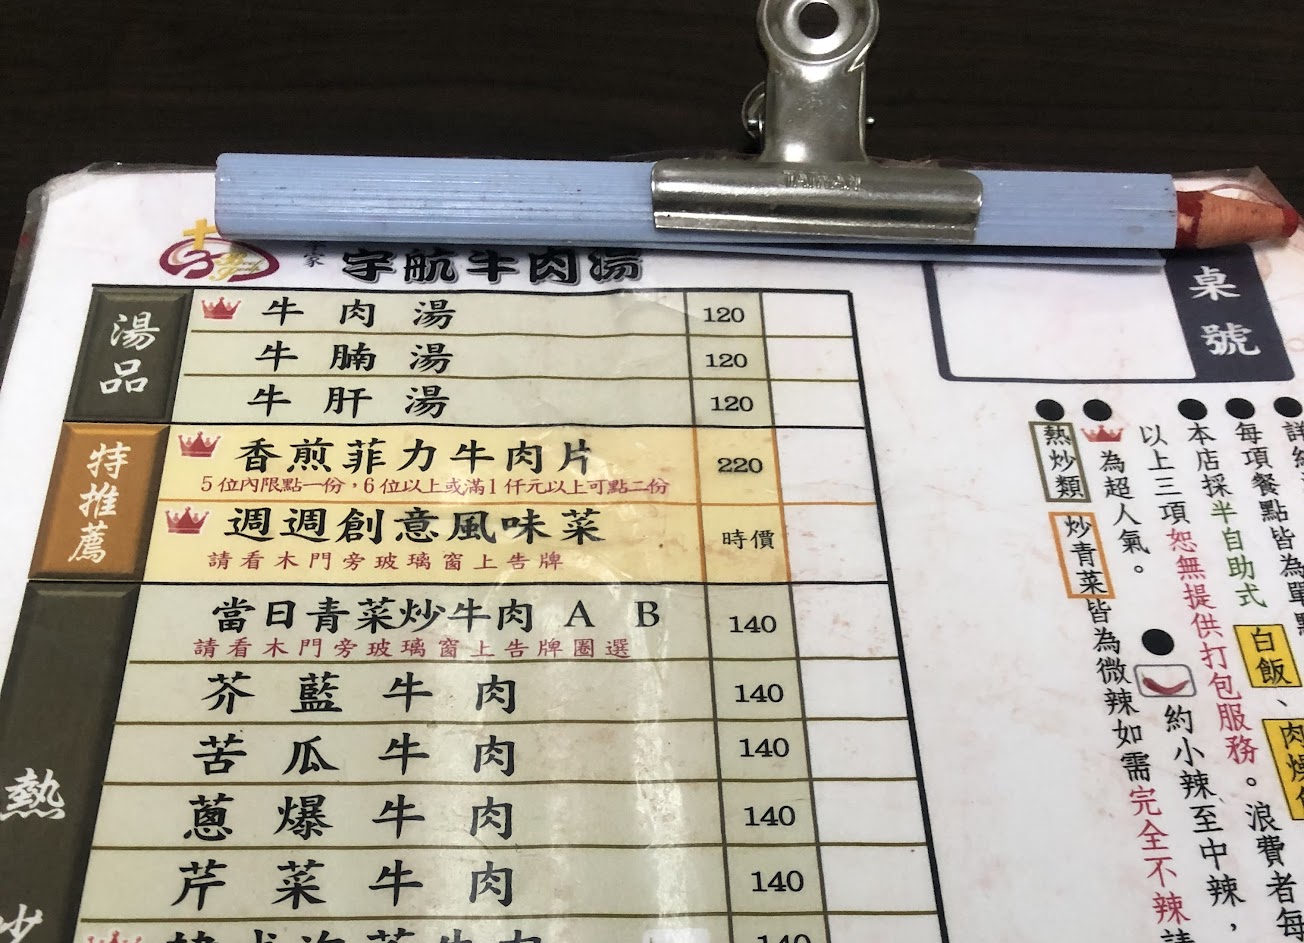 TAIWAN
家 宇航牛肉湯
桌號
湯品
牛肉湯 120
牛腩湯 120
牛肝湯 120
特推薦
香煎菲力牛肉片 220
5位內限點一份，6位以上或滿1仟元以上可點二份
週週創意風味菜 時價
請看木門旁玻璃窗上告牌
熱炒
當日青菜炒牛肉 A B 140
請看木門旁玻璃窗上告牌圈選
芥藍牛肉 140
苦瓜牛肉 140
蔥爆牛肉 140
芹菜牛肉 140
140
每項餐點皆為單點
白飯、肉燥
●本店採半自助式
。浪費者每
以上三項恕無提供打包服務
●為超人氣。
●約小辣至中辣，
●熱炒類 炒青菜皆為微辣如需完全不辣請